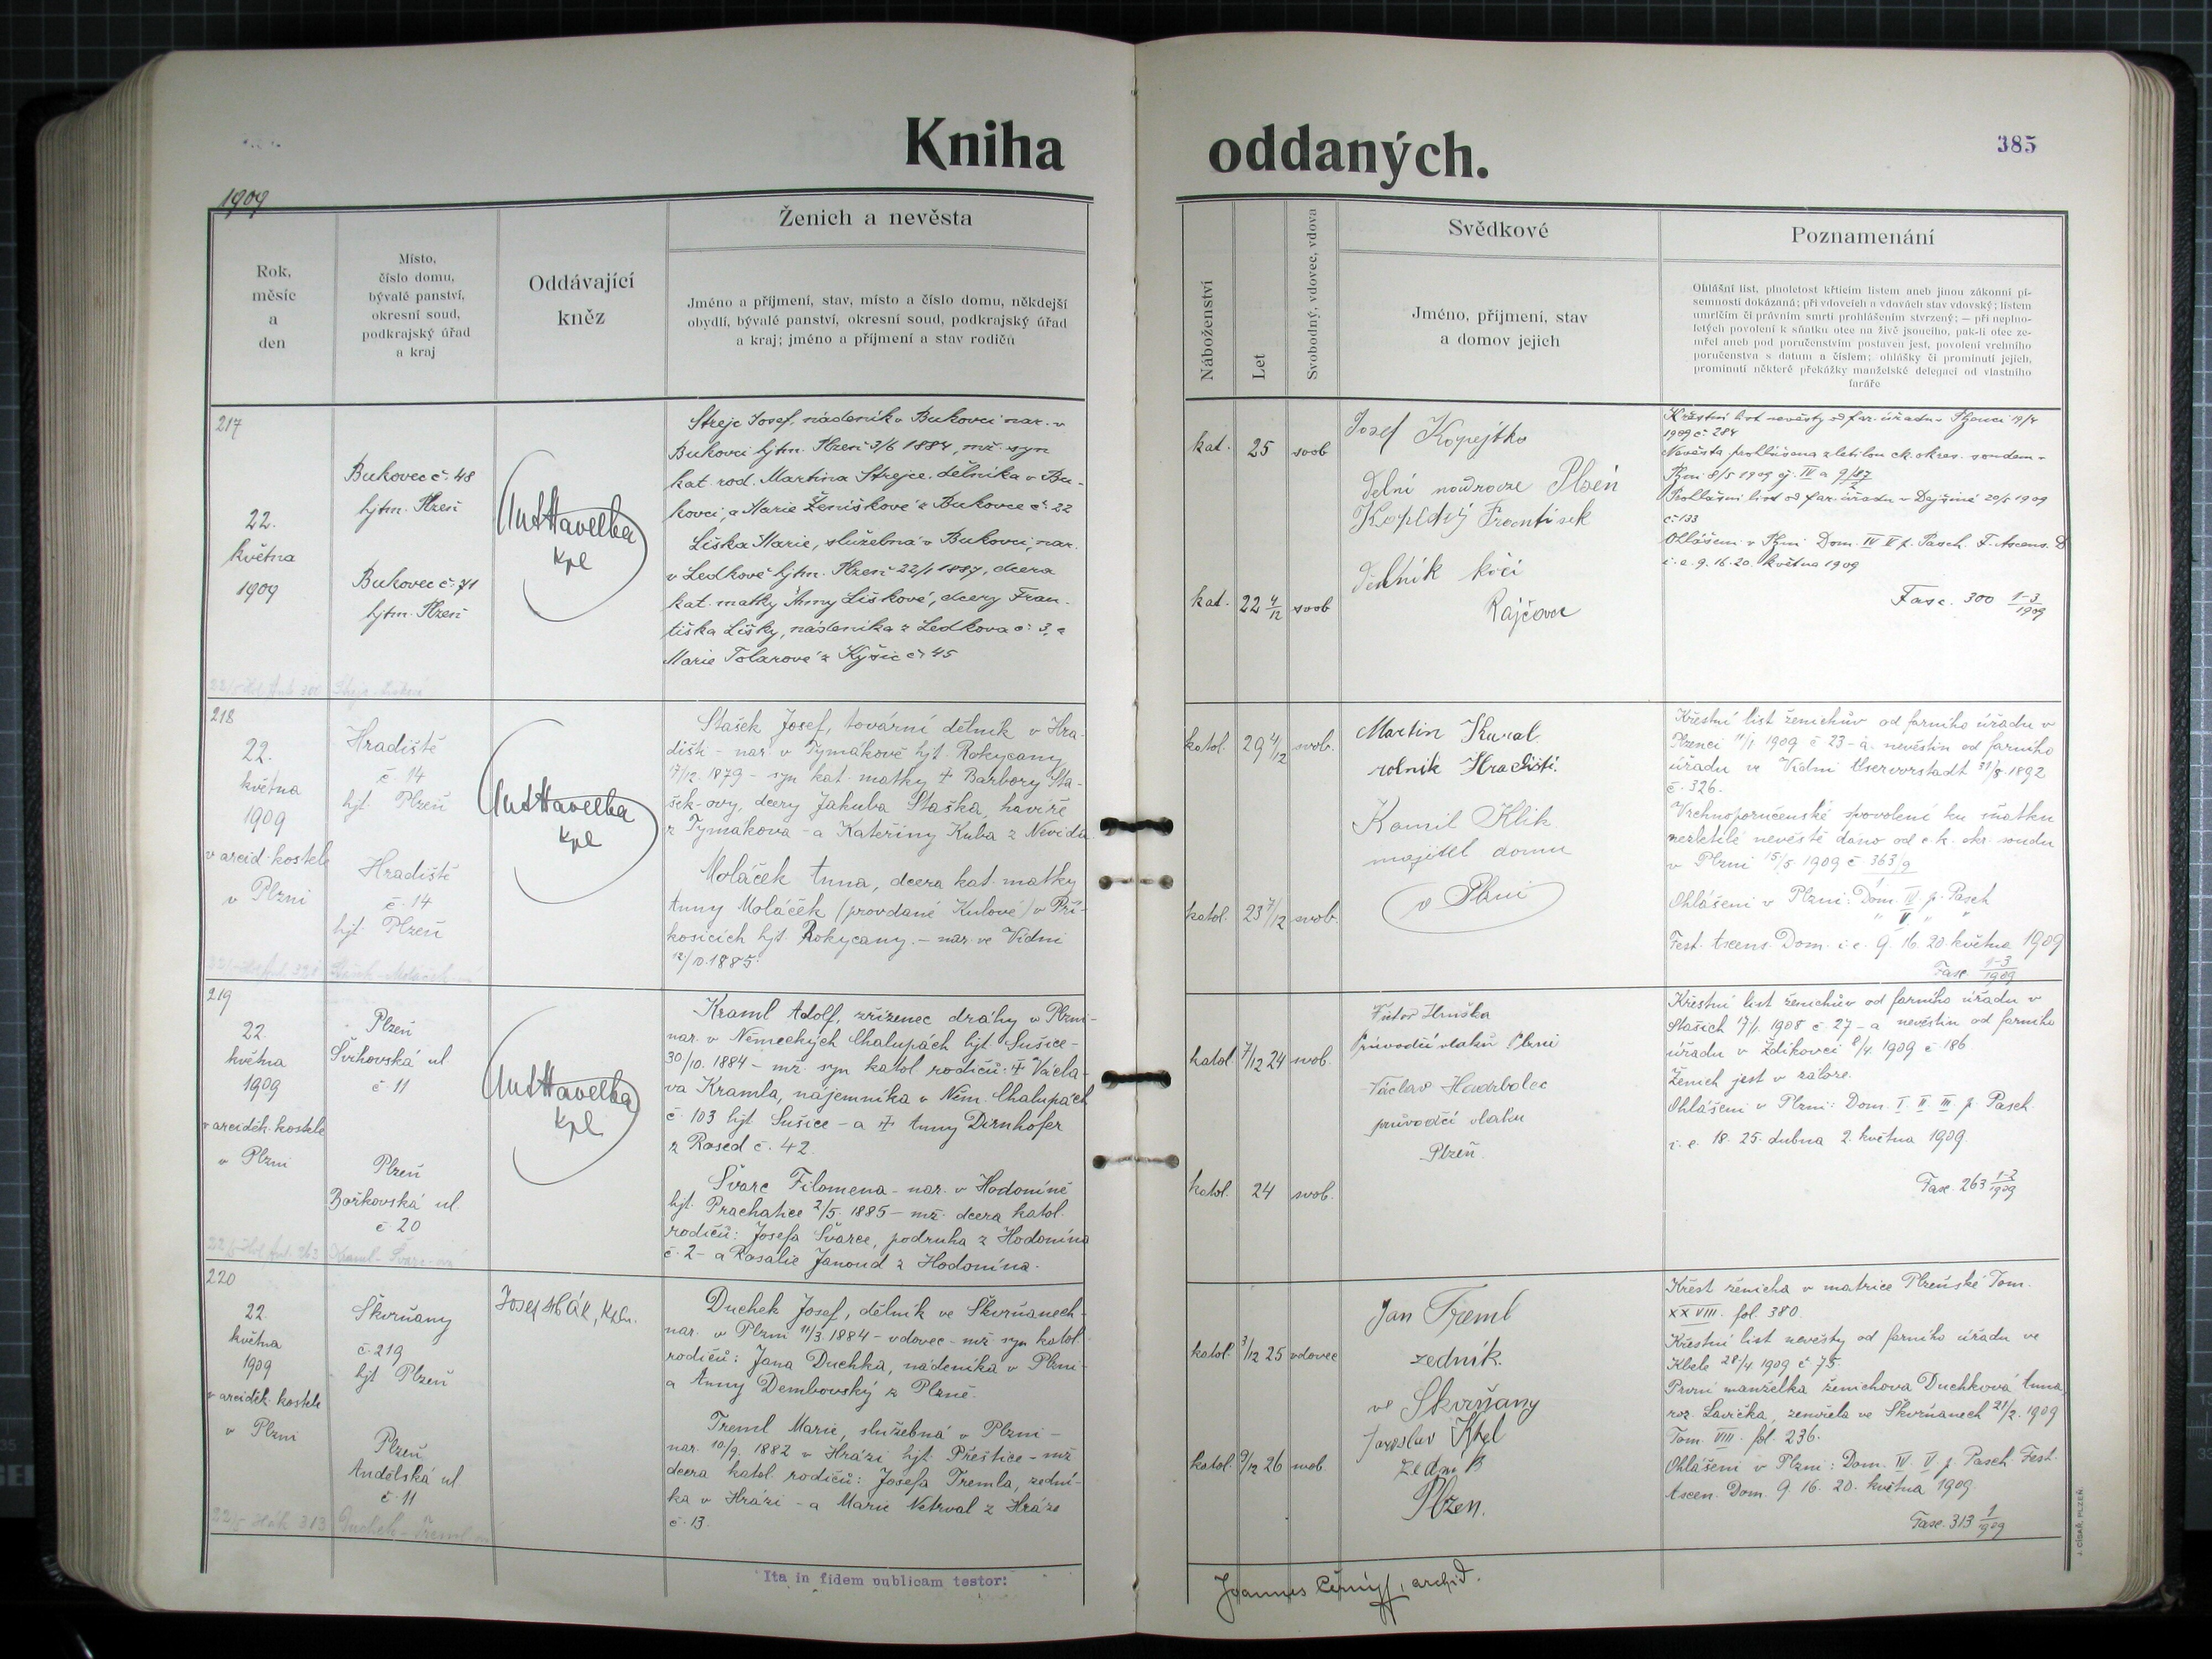 Kniha oddaných.
385
1909
Rok,
měsíc
a
den
Místo,
číslo domu,
bývalé panství,
okresní soud,
podkrajský úřad
a kraj
Oddávající
kněz
Ženich a nevěsta
Jméno a příjmení, stav, místo a číslo domu, někdejší
obydlí, bývalé panství, okresní soud, podkrajský úřad
a kraj; jméno a příjmení a stav rodičů
Náboženství
Let
Svobodný, vdovec, vdova
Svědkové
Jméno, příjmení, stav
a domov jejich
Poznamenání
Ohlášní list, plnoletost křticím listem aneb jinou zákonní pí-
semností dokázaná; při vdovcích a vdovách stav vdovský; listem
umrlčím či právním smrti prohlášením stvrzený; — při neplno-
letých povolení k sňatku otce na živě jsoucího, pak-li otec ze-
mřel aneb pod poručenstvím postaven jest, povolení vrchního
poručenstva s datum a číslem; ohlášky či prominutí jejich,
prominutí některé překážky manželské delegací od vlastního
faráře
217
22.
května
1909
Bukovec č. 48
hjtm. Plzeň
Bukovec č. 71
hjtm. Plzeň
Ant Havelka
Kpl
Strejc Josef, nádeník v Bukovci nar. v
Bukovci hjtm. Plzeň 3/6 1884, mž. syn
kat. rod. Martina Strejce, dělníka v Bu-
kovci, a Marie Ženíškové z Bukovce č. 22
Liška Marie, služebná v Bukovci, nar.
v Ledkově hjtm. Plzeň 22/1 1887, dcera
kat. matky Anny Liškové, dcery Fran-
tiška Lišky, nádeníka z Ledkova č. 3, a
Marie Tolarové z Kyšic č. 45
kat. 25 svob
kat. 22 4/12 svob
Josef Kopejtko
Plzeň
Kopejtko František
Křestní list nevěsty od far. úřadu v Plzenci 19/4
1909 č. 284
Nevěsta prohlášena zletilou ck. okres. soudem v
Plzni 8/5 1909
Prohlášní list od far. úřadu v Dejšině 20/5 1909
č. 133
Ohlášeni v Plzni Dom. IV V p. Pasch. F. Ascens. D
i. e. 9. 16. 20. května 1909
Fasc. 300 1-3/1909
218
22.
května
1909
v arcid. kostele
v Plzni
Hradiště
č. 14
hjt. Plzeň
Hradiště
č. 14
hjt. Plzeň
Ant Havelka
Kpl
Stašek Josef, tovární dělník v Hra-
dišti - nar. v Tymákově hjt. Rokycany
17/12. 1879 - syn kat. matky † Barbory Sta-
šek-ovy, dcery Jakuba Staška, havíře
z Tymákova - a Kateřiny Kuba z Nevida
Moláček Anna, dcera kat. matky
Anny Moláček (provdané Kulové) v Pří-
kosicích hjt. Rokycany. - nar. ve Vídni
12/10. 1885.
katol. 29 4/12 svob.
katol. 23 7/12 svob.
Martin Kural
rolník Hradiště.
Kamil Klik
majitel domu
v Plzni
Křestní list ženichův od farního úřadu v
Plzenci 11/1. 1909 č 23 - a nevěstin od farního
úřadu ve Vídni Alservorstadt 31/8. 1892
č. 326.
Vrchnoporučenské spovolení ku sňatku
nezletilé nevěstě dáno od c. k. okr. soudu
v Plzni 15/5 1909 č 363/9
Ohlášeni v Plzni: Dom. IV. p. Pasch
" V " "
Fest. Ascens. Dom. i. e. 9. 16. 20. května 1909
Fasc 1-3/1909
219
22.
května
1909
v arciděk. kostele
v Plzni
Plzeň
č 11
Plzeň
Božkovská ul.
č 20
Ant Havelka
Kpl
Kraml Adolf, zřízenec dráhy v Plzni-
nar. v Německých Chalupách hjt. Sušice -
30/10. 1884 - mž. syn katol. rodičů: † Václa-
va Kramla, nájemníka v Něm. Chalupách
č. 103 hjt Sušice - a † Anny Dirnhofer
z Rosed č. 42.
Švarc Filomena - nar. v Hodoníně
hjt. Prachatice 2/5. 1885 - mž. dcera katol.
rodičů: Josefa Švarce, podruha z Hodonína
č. 2 - a Rosalie Janoud z Hodonína.
katol. 7/12 24 svob.
katol. 24 svob.
Hruška
Průvodčí vlaků Plzni
Václav Hadrbolec
průvodčí vlaku
Plzeň
Křestní list ženichův od farního úřadu v
Staších 17/1. 1908 č. 27 - a nevěstin od farního
úřadu v Ždikovci 8/4. 1909 č 186.
Ženich jest v záloze.
Ohlášeni v Plzni: Dom. I. II. III. p. Pasch.
i. e. 18. 25. dubna 2. května 1909.
Fasc. 263 1-2/1909
220
22.
května
1909
v arciděk. kostele
v Plzni
Škvrňany
č. 219
hjt Plzeň
Plzeň
Andělská ul
č. 11
Josef Hák, Kpln.
Duchek Josef, dělník ve Škvrňanech-
nar. v Plzni 11/3. 1884 - vdovec - mž syn katol.
rodičů: Jana Duchka, nádeníka v Plzni-
a Anny Dembovský z Plzně.
Treml Marie, služebná v Plzni -
nar. 10/9. 1882 v Hrázi hjt. Přeštice - mž
dcera katol. rodičů: Josefa Tremla, zední-
ka v Hrázi - a Marie Netrval z Hráze
č. 13.
katol. 3/12 25 vdovec
katol. 9/12 26 svob.
Jan Treml
zedník.
ve Skvrňany
Jaroslav
zedník
Plzen.
Křest ženicha v matrice Plzeňské Tom.
XXVIII. fol. 380.
Křestní list nevěsty od farního úřadu ve
28/4. 1909 č 75
První manželka ženichova Duchková Anna,
roz. Lavička, zemřela ve Škvrňanech 21/2. 1909
Tom. VIII. fol. 236.
Ohlášeni v Plzni: Dom. IV. V. p. Pasch. Fest.
Ascen. Dom. 9. 16. 20. května 1909.
Fasc. 313 1/1909
Ita in fidem publicam testor:
Joannes Černý, archid.
J. CÍSAŘ, PLZEŇ.